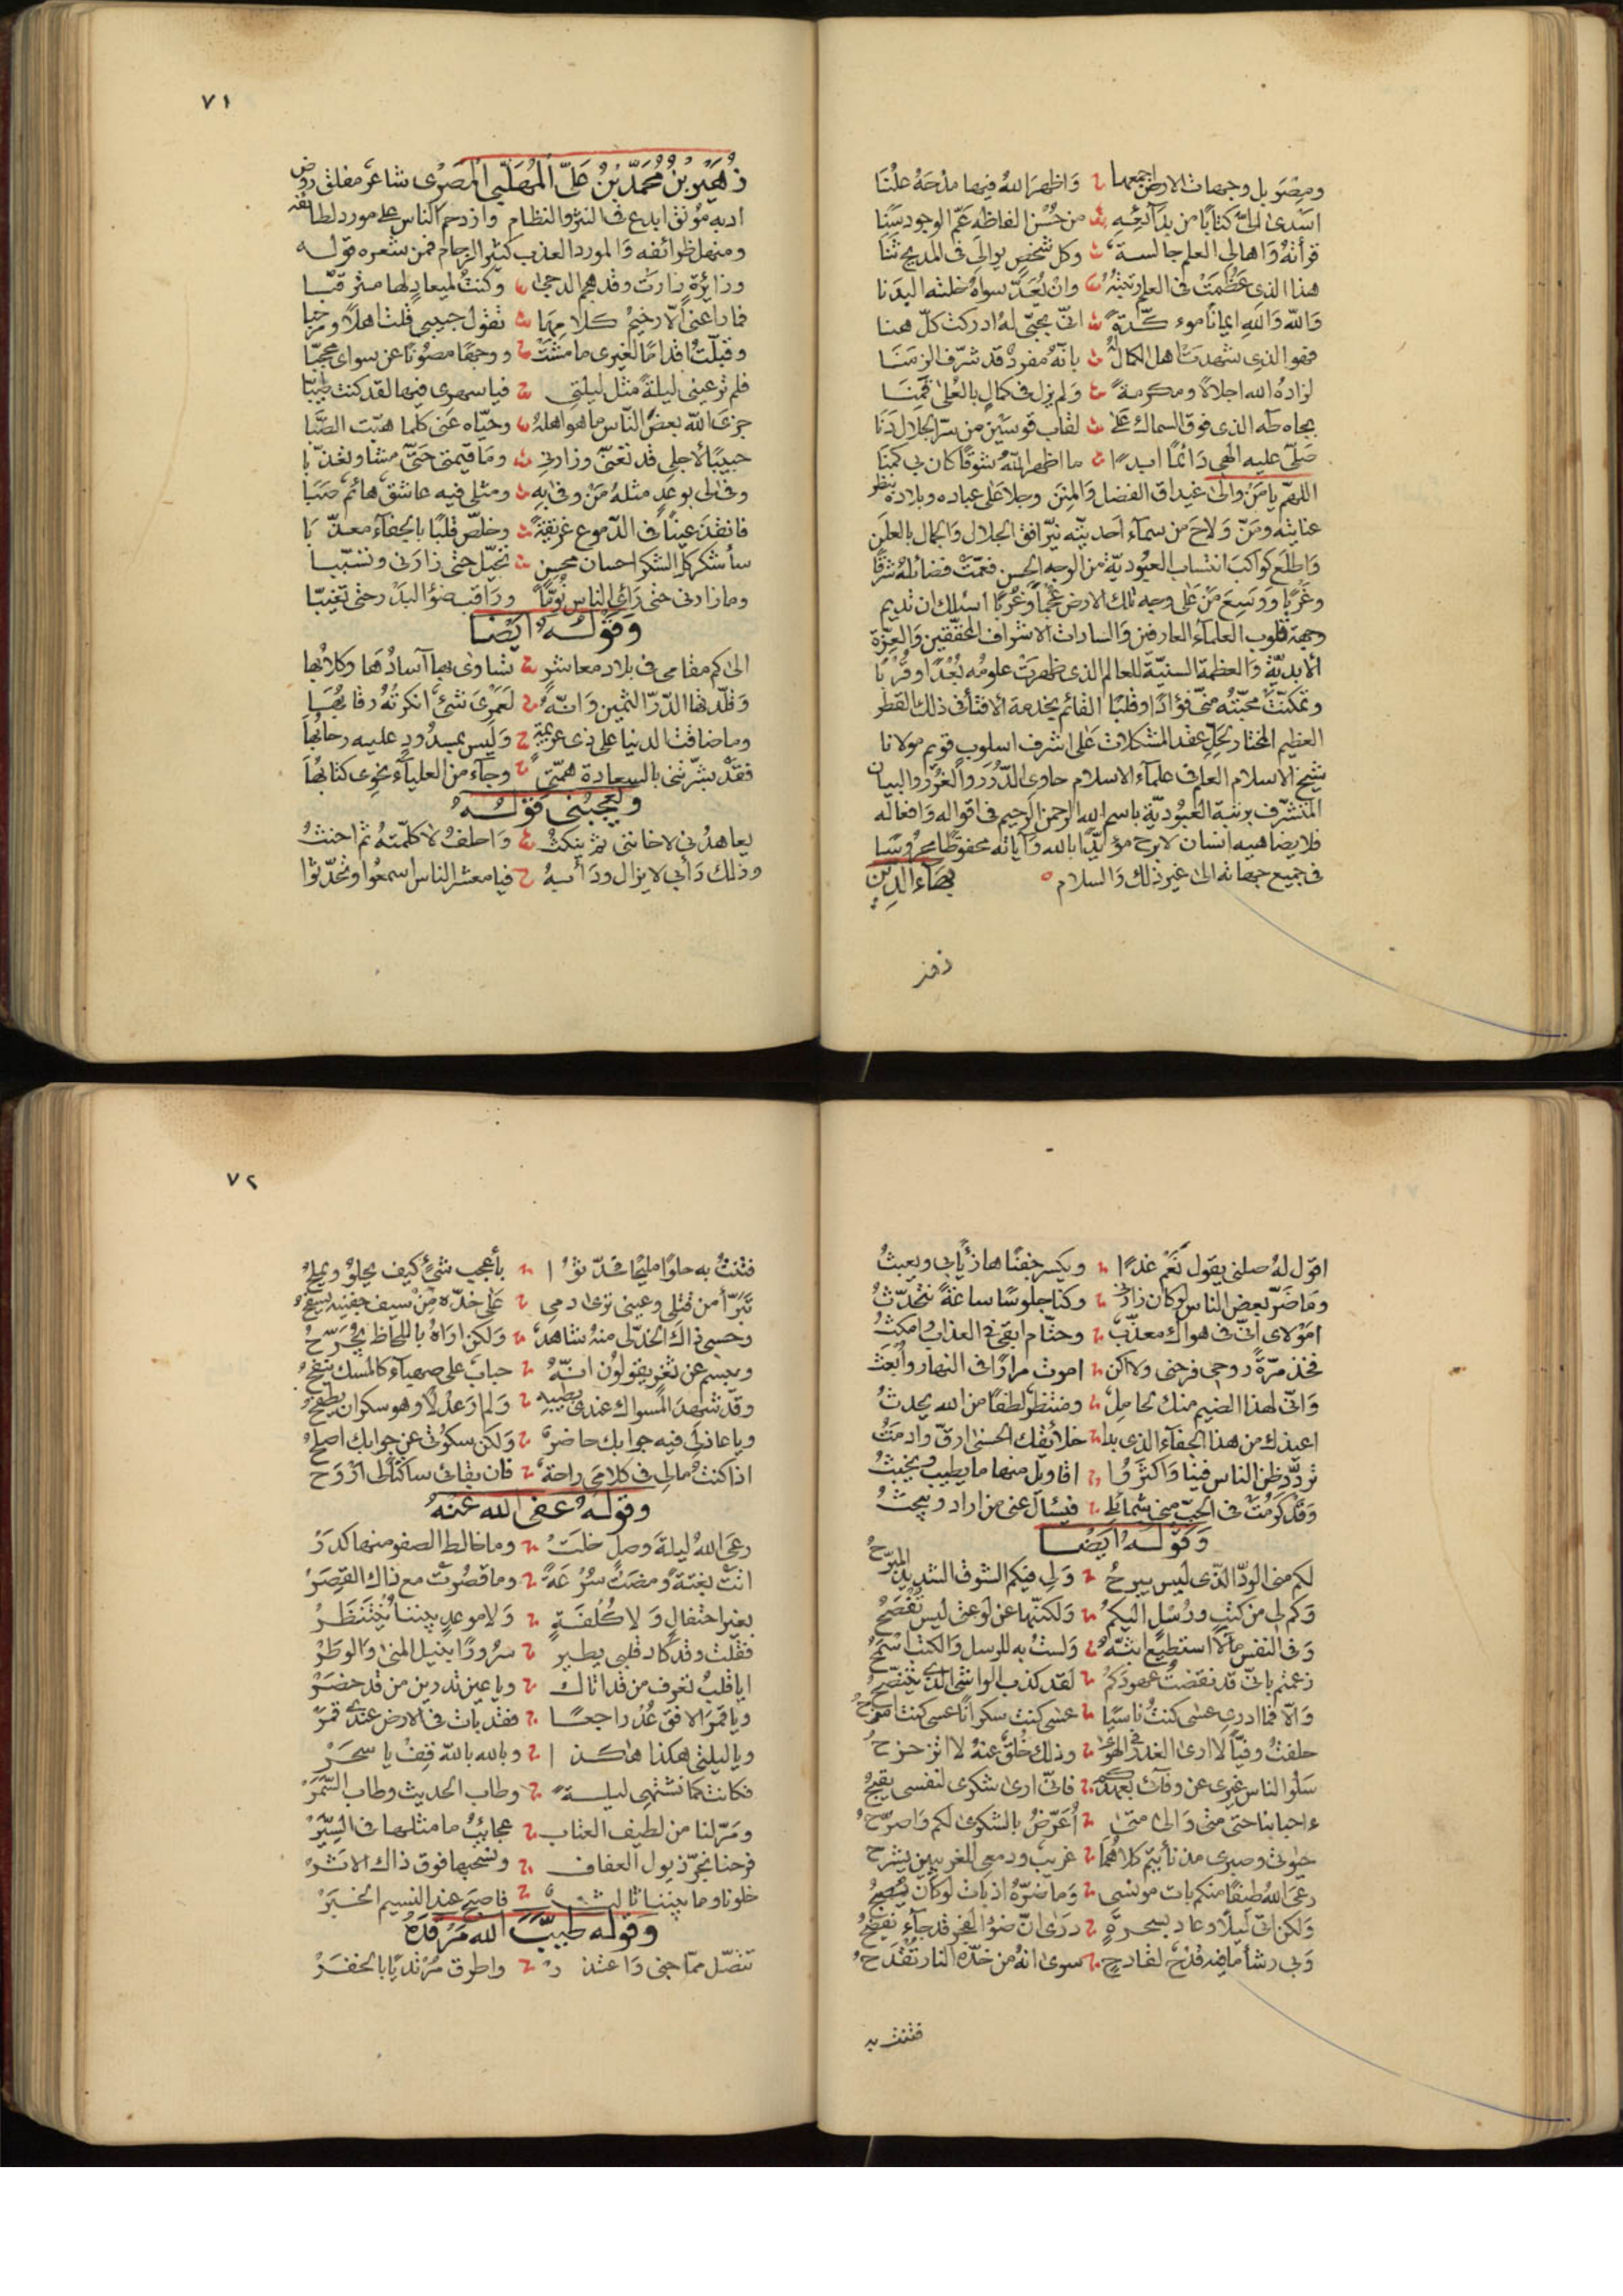 ومصر بل وجهات الارض اجمعها وَاظهرَ اللهُ فيها مدحَهُ علنَا
اسَدى الىّ كتابًا من بدآئِعِهِ من حُسْن الفاظهِ عَمّ الوجود سَنا
قرأتهُ وَاهالي العلم جالسة وكل شخصٍ يوالي في المديح ثنا
هذا الذي عَظُمَتْ في العلم رتبتهُ وان يُعَدّ سواهُ خلته البدَنا
وَاللهِ وَاللهِ ايمانًا موءكّدةً انّى بحبّى لهُ ادركت كلّ هنا
فهو الذي شهدت اهل الكمال بانهُ مفردٌ قد شرّف الزمنَا
لزادهُ الله اجلالاً ومكرمةً وَلم يزل في كمالٍ بالعُلى قمِنَا
بجاه طه الذي فوق السماك علي لقاب قوسَيْن من سرّ الجلال دَنا
صَلّى عليه الهي دَائمًا ابدًا ما اظهر اللهُ شوقًا كان بي كمنَا
اللهمّ يا مَنْ والى غيداق الفضل وَالمِنَن وجلا عَلى عباده وبلاده بنظر
عنايته ومَنّ وَلاحَ من سمآء احديّته نيّر افق الجلال وَالجمال بالعلَن
وَاطلَع كواكبَ انتساب العبُوديّة من الوجه الحسن فعمّت فضائلهُ شرقًا
وغربًا وَوَسِعَ مَنْ عَلى وجه تلك الارض عُجْمًا وعُربًا اسئلك ان تديم
وجهة قلوب العلمآء العارفين وَالسادات الاشراف المحققين وَالعِزّة
الابديّة وَالعظمة السنيّة للعالم الذي ظهرَتْ علومُه بُعْدًا وقُربًا
وتمكنَتْ محبّتهُ منّى فؤادًا وقلبًا القائم بخدمة الافتآء في ذلك القطر
العظيم المختار لحَلِّ عقد المشكلات عَلى اشرف اسلوب قويم مولانا
شيخ الاسلام العلم في علمآء الاسلام حاوى الدّرَر والغُرَر والبيان
المتشرّف برتبة العبُوديّة باسم الله الرحمن الرحيم في اقواله وَافعاله
فلا يضاهيه انسان لا برح مؤيّدًا بالله وَآياته محفوظًا محروسًا
في جميع جهاته الى غير ذلك وَالسلام بهَاء الدين
زهير
٧١
زُهَيْرُ بْنُ مُحمَّدِ بْنِ عَلىّ المُهَلّبى المصْرى شاعر مفلق روض
ادبه مؤنق ابدع في النثر والنظام وازدحم الناس على مورد لطائفه
ومنهل ظرائفه وَالمورد العذب كثير الزحام فمن شعره قوله
وزائرة زارت وقد هجم الدجى وكنتُ لميعادٍ لها مترقّبا
فما راعني الّا رخيمُ كلامِهَا تقول حبيبي قلت اهلاً ومرحبا
وقبلّتُ اقدامًا لغيرى ما مشَتْ ووجهًا مصُونًا عن سواى محجبّا
فلم ترعيني ليلةً مثل ليلتي فيا سهرى فيها لقد كنت طيّبا
جزى الله بعضَ النّاس ما هو اهلهُ وحيّاه عَنى كلما هبّت الصّبَا
حبيبًا لأجلي قد تعنّى وزارني وما قيمتي حتى مشا وتعذّبا
وفى لى بوعدٍ مثلهُ مَنْ وفى بِهِ ومثلي فيه عاشق هائم صَبَا
فانقذَ عينًا في الدّموع غريقةً وخلّص قلبًا بالجفآء معذّبَا
سأشكر كل الشكر احسان محسنٍ تحيّل حتى زارني وتسبّبا
وما زارني حتى رَأى الناس نُوّمًا ورَاقب ضؤَ البدْر حتى تغيبّا
وَقولُهُ ايْضًا
الى كم مقامى في بلاد معاشرٍ تساوى بها آسادُهَا وكلابُها
وَقلّدتها الدّرّ الثمين وَانّهُ لَعمرُكَ شيءٌ انكرتهُ رقابُهَا
وما ضاقت الدنيا على ذى عزيمةٍ وَليس بمسدودٍ عليه رحابُهَا
فقدْ بشّرتنى بالسعادة همّتى وجآء من العليآء نحوى كتابُهَا
ويُعجبُنى قوْلُهُ
يعاهدُنى لا خاننى ثمّ ينكثُ وَاحلفُ لا كلّمتهُ ثم احنثُ
وذلك دَأبى لا يزال ودَأبهُ فيا معشر الناس اسمعُوا وتحدّثوا
اقول لهُ صلني يقول نَعَمْ غدًا ويكسر جفنًا هازئًا بي ويعبثُ
وَمَا ضَرّ بعض الناس لو كان زارنى وكنا جلوسًا ساعةً نتحدّثُ
امَوْلاى انّى في هواك معذّب وحتّام ابقى في العذاب وامكثُ
فخذ مرّةً روحى فرحنى ولا اكن اموت مرارًا في النهار وَأُبعَثُ
وَانّى لهذا الضيم منك لحامِلٌ ومنتظر لطفًا من الله يحدثُ
اعيذك من هذا الجفآء الذى بدا خلائقك الحسنى ارقّ وادمثُ
تردّد ظن الناس فينا وَاكثرُوا اقاويل منها ما يطيب ويخبثُ
وَقد كَرُمَتْ في الحبّ منى شمائلى فيسأل عنى من اراد ويبحثُ
وَقَولُهُ ايضًا
لكم منى الودّ الذى ليس يبرحُ وَلى فيكم الشوق الشديد المبرّحُ
وَكم لى من كتبٍ ورُسْلٍ اليكمُ وَلكنّها عن لوعتى ليس تُفصحُ
وَفى النفس ما لا استطيع ابثّهُ وَلستُ به للرسل وَالكتب اسْمَحُ
زعمتم بانّى قد نقضتُ عهودَكم لقد كذب الواشى الذى يتنصّحُ
وَالّا فما ادرى عسى كنتُ ناسيًا عسى كنت سكرانًا عسى كنت امزحُ
حلفتُ وفيًّا لا ارى الغدر في الهوى وذلك خُلقٌ عنهُ لا اتزحزحُ
سَلُوا الناس غيرى عن وفآئى بعهدكم فانّى ارى شكرى لنفسى يقبحُ
ءاحبابنا حتى متى وَالى متى اُعَرّضُ بالشكوى لكم وَاصرّحُ
حيوتى وصبرى مذ نأيتم كلاهُمَا غريب ودمعى للغريبين يشرح
رعَى اللهُ طيفًا منكم بات مونسى وَما ضرّهُ اذ بات لو كان يُصبحُ
وَلكن اتى ليلاً وعاد بسحرةٍ درى انّ ضؤَ الفجر قد جآء يفضحُ
وَبى رشأ ما فيه قدْحٌ لقادحٍ سوى انهُ من خدّه النار تُقْدَحُ
فتنت به
٧٢
فتنتُ به حلوًا مليحًا فحدّثوا بأعجب شيءٍ كيف يحلوُ ويملحُ
تبَرّأ من قتلى وعينى ترى دمى عَلى خدّه مِنْ سيف جفنيه يسفحُ
وحسبى ذاك الخدّ لى منهُ شاهد وَلكن ارَاهُ باللحاظ يُجَرّحُ
ويبسم عن ثغرٍ يقولون انّهُ حباب على صهبآء كالمسك تنفحُ
وقد شهدَ المسواك عندى بطيبهِ وَلم ارَ عدْلاً وهو سكران يطفحُ
ويا عاذلى فيه جوابك حاضر وَلكن سكوتى عن جوابك اصلح
اذا كنت مالى في كلامى راحة فان بقائى ساكتًا لى ارْوَح
وقولهُ عفى الله عنهُ
رعَى اللهُ ليلةَ وصلٍ خلَتْ وما خالط الصفو منها كدَرْ
اتتْ بغتةً ومضَتْ سُرْعَةً وما قصّرت مع ذاك القِصَرْ
بغير احتفالٍ وَلا كُلفَةٍ وَلا موعدٍ بيننا يُنتَظَرْ
فقلت وقد كاد قلبى يطير سرُورًا بنيل المنى وَالوطَرْ
ايا قلبُ تعرف من قد اتاك ويا عين تدرين من قد حضَرْ
ويا قمَر الافق عُدْ راجعًا فقد بات في الارض عندى قمَرْ
ويا ليلتى هكذا هكذا وبالله بالله قِفْ يا سحَرْ
فكانت كما نشتهى ليلةً وطاب الحديث وطاب السّمَرْ
ومَرّ لنا من لطيف العتاب عجائب ما مثلها في السِيَرْ
فرحنا نجرّ ذيول العفاف ونسحبها فوق ذاك الاثَرْ
خلونا وما بيننا ثالث فاصبح عند النسيم الخبَرْ
وقوله طيبَّ الله مَرْقدَهُ
تنصّل ممّا جنى وَاعتذر واطرق مُرْتديًا بالخفَرْ